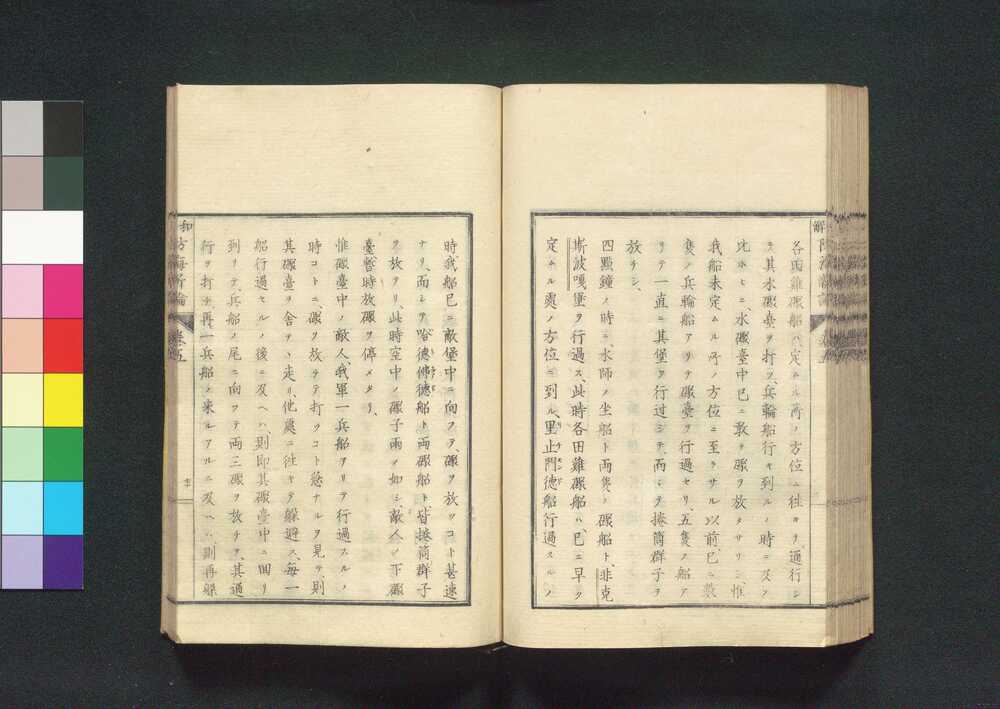 各田雞礟船ハ定ムル所ノ方位ニ往キテ、通行シ
テ其水礟臺ヲ打ツ、兵輪船行キ到ルノ時ニ及フ
比ホヒニ、水礟臺中已ニ敢テ礟ヲ放タサリシ、惟
我船未定ムル所ノ方位ニ至ラサル以前、已ニ数
隻ノ兵輪船アリテ礟臺ヲ行過セリ、五隻ノ船ア
リテ一直ニ其堡ヲ行过シテ、両シテ捲筒群子ヲ
放チシ、
四點鐘ノ時ニ、水師ノ坐船ト両隻ノ礟船ト、非克
斯波嘎堡ヲ行過ス、此時各田雞礟船ハ、已ニ早ク
定ムル處ノ方位ニ到ル、里止門德船行過スルノ
時我船已ニ敵堡中ニ向フテ、礟ヲ放ツコト甚速
ナリ、而シテ哈德佛德船ト両礟船ト皆捲筒群子
ヲ放テリ、此時空中ノ礟子雨ノ如シ、敵人ノ下礟
臺暫時放礟ヲ停メタリ、
惟礟臺中ノ敵人、我軍一兵船ヲリテ行過スルノ
時コトニ、礟ヲ放チテ打ツコト急ナルヲ見テ則
其礟臺ヲ舍テヽ走リ、他處ニ往キテ躲避ス、毎一
船行過セルノ後ニ及ヘハ、則即其礟臺中ニ回リ
到リテ、兵船ノ尾ニ向フテ両三礟ヲ放チテ、其過
行ヲ打チ、再一兵船ノ来ルアルニ及ヘハ、則再躲
防海新論 巻五